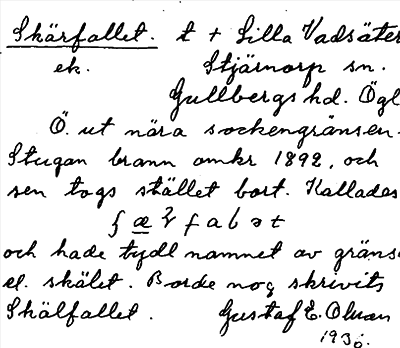 Skärfallet. t + Lilla Vadsäter
ek. Stjärnorp sn.
Gullbergs hd. Ögl
Ö. ut nära sockengränsen.
Stugan brann omkr 1892, och
sen togs stället bort. Kallades
och hade tydl namnet av gräns
el. skälet. Borde nog skrivits
Skälfallet. Gustaf E. Olman
1930.